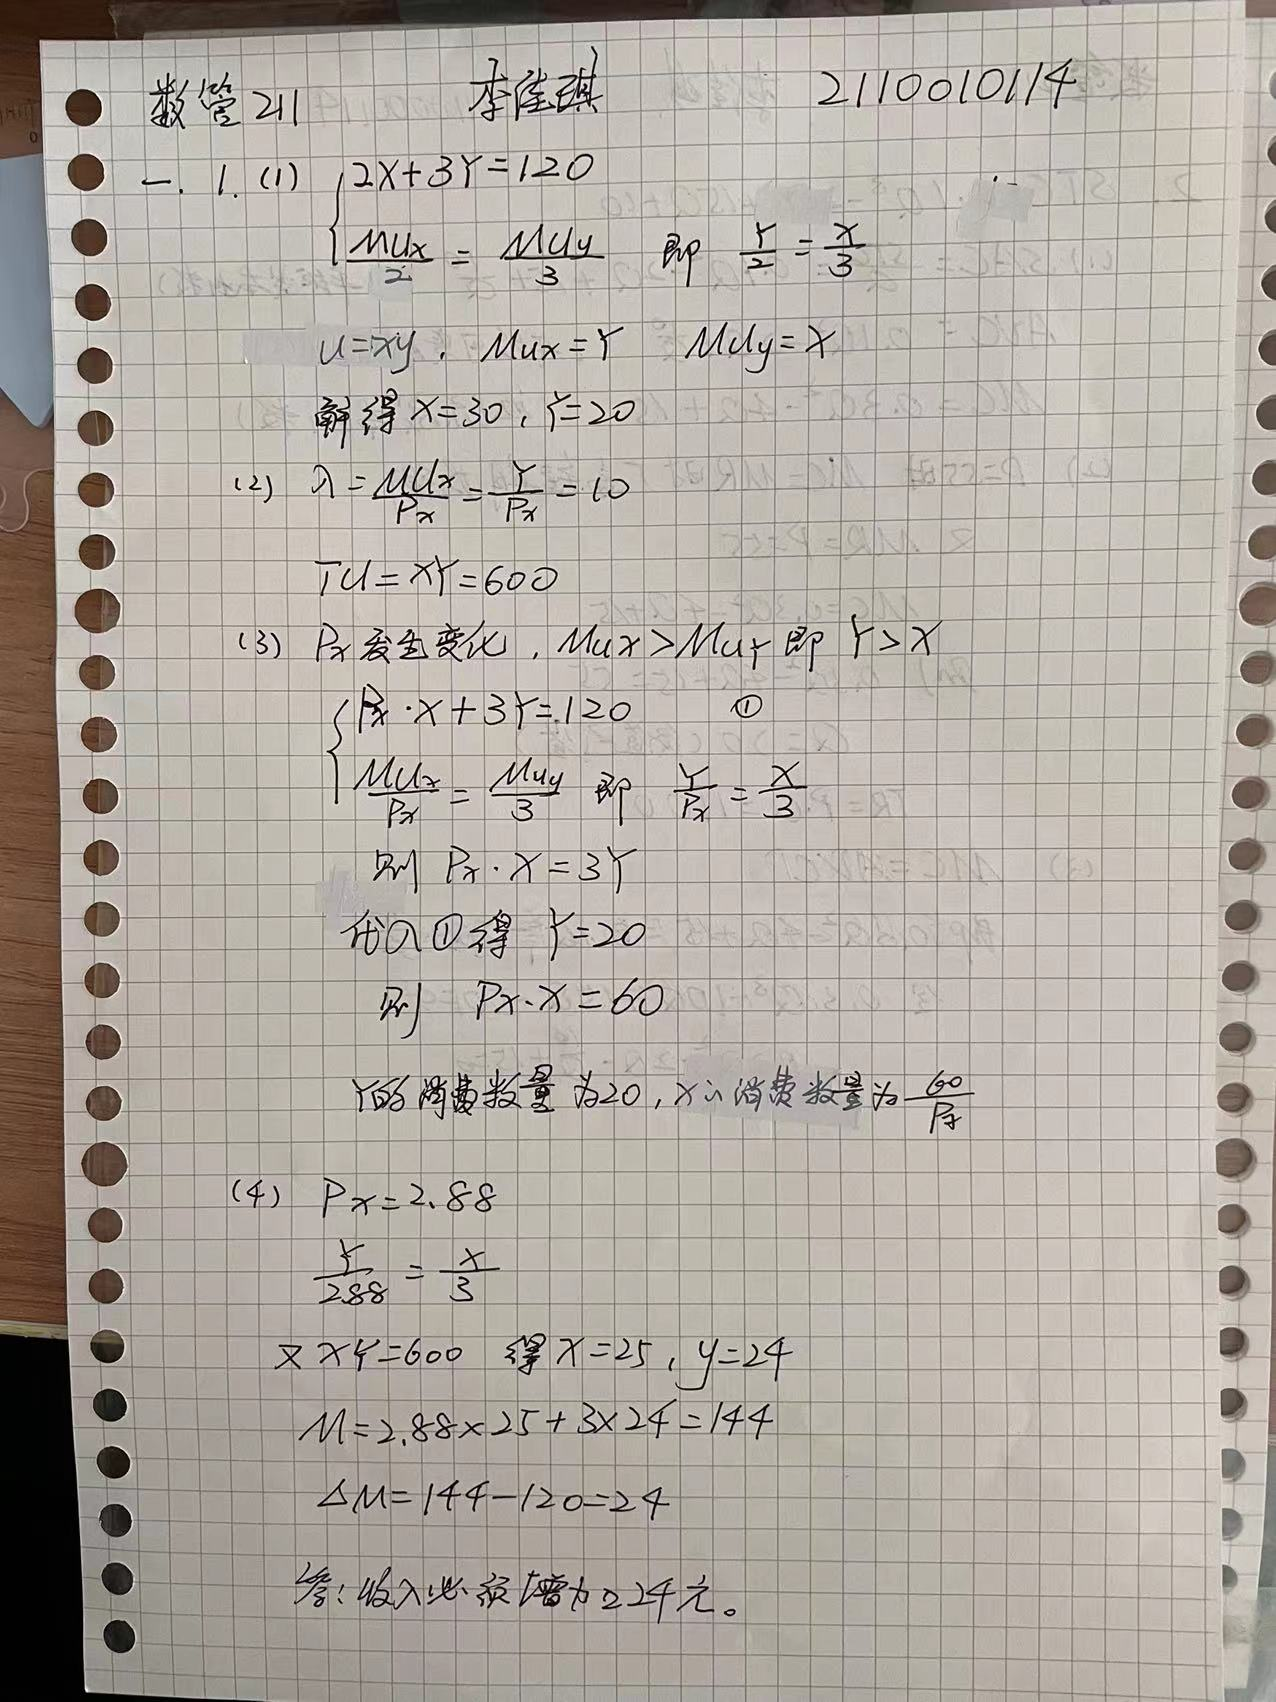 数管211 李佳琪 2110010114
一. 1. (1) { 2X+3Y=120
MUx/2 = MUy/3 即 Y/2 = X/3
U=xy, Mux=Y MUy=X
解得 X=30, Y=20
(2) λ=MUx/Px=Y/Px=10
TU=XY=600
(3) Px发生变化, Mux>MuY 即 Y>X
{ Px·X+3Y=120 ①
MUx/Px = Muy/3 即 Y/Px = X/3
则 Px·X=3Y
代入①得 Y=20
则 Px·X=60
Y的消费数量为20, X的消费数量为 60/Px
(4) Px=2.88
Y/2.88 = X/3
又 XY=600 得 X=25, y=24
M=2.88×25+3×24=144
△M=144-120=24
答: 收入必须增加24元。